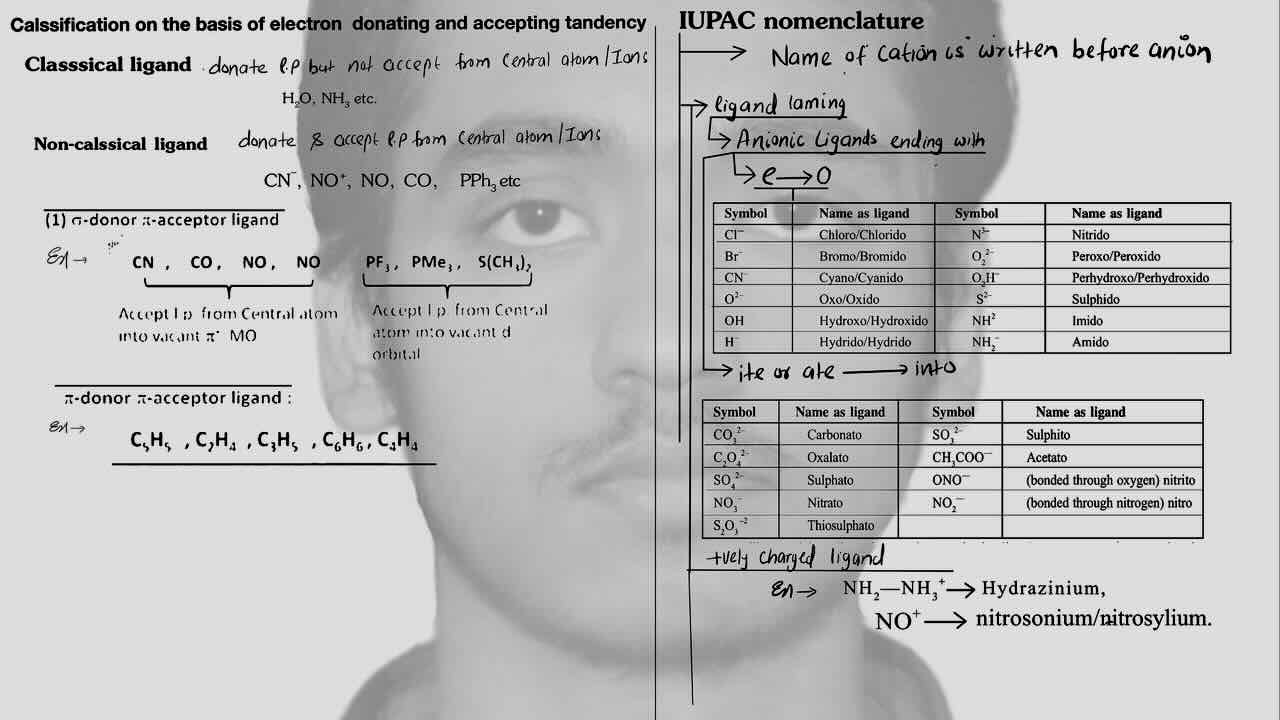 Calssification on the basis of electron donating and accepting tandency
Classsical ligand donate l.p but not accept from Central atom/Ions
H₂O, NH₃ etc.
Non-calssical ligand donate & accept l.p from Central atom/Ions
CN⁻, NO⁺, NO, CO, PPh₃ etc
(1) σ-donor π-acceptor ligand
Ex→ CN , CO, NO, NO PF₃, PMe₃, S(CH₃)₂
Accept l p. from Central atom
into vacant π* MO
Accept l p. from Central
atom into vacant d
orbital
π-donor π-acceptor ligand :
Ex→ C₅H₅ , C₂H₄ , C₃H₅ , C₆H₆, C₄H₄
IUPAC nomenclature
→ Name of cation is written before anion
→ ligand laming
→ Anionic Ligands ending with
→ e → o
Symbol Name as ligand Symbol Name as ligand
Cl⁻ Chloro/Chlorido N³⁻ Nitrido
Br⁻ Bromo/Bromido O₂²⁻ Peroxo/Peroxido
CN⁻ Cyano/Cyanido O₂H⁻ Perhydroxo/Perhydroxido
O²⁻ Oxo/Oxido S²⁻ Sulphido
OH Hydroxo/Hydroxido NH² Imido
H⁻ Hydrido/Hydrido NH₂⁻ Amido
→ ite or ate → into
Symbol Name as ligand Symbol Name as ligand
CO₃²⁻ Carbonato SO₃²⁻ Sulphito
C₂O₄²⁻ Oxalato CH₃COO⁻ Acetato
SO₄²⁻ Sulphato ONO⁻ (bonded through oxygen) nitrito
NO₃⁻ Nitrato NO₂⁻ (bonded through nitrogen) nitro
S₂O₃⁻² Thiosulphato
+vely charged ligand
Ex→ NH₂—NH₃⁺→ Hydrazinium,
NO⁺→ nitrosonium/nitrosylium.